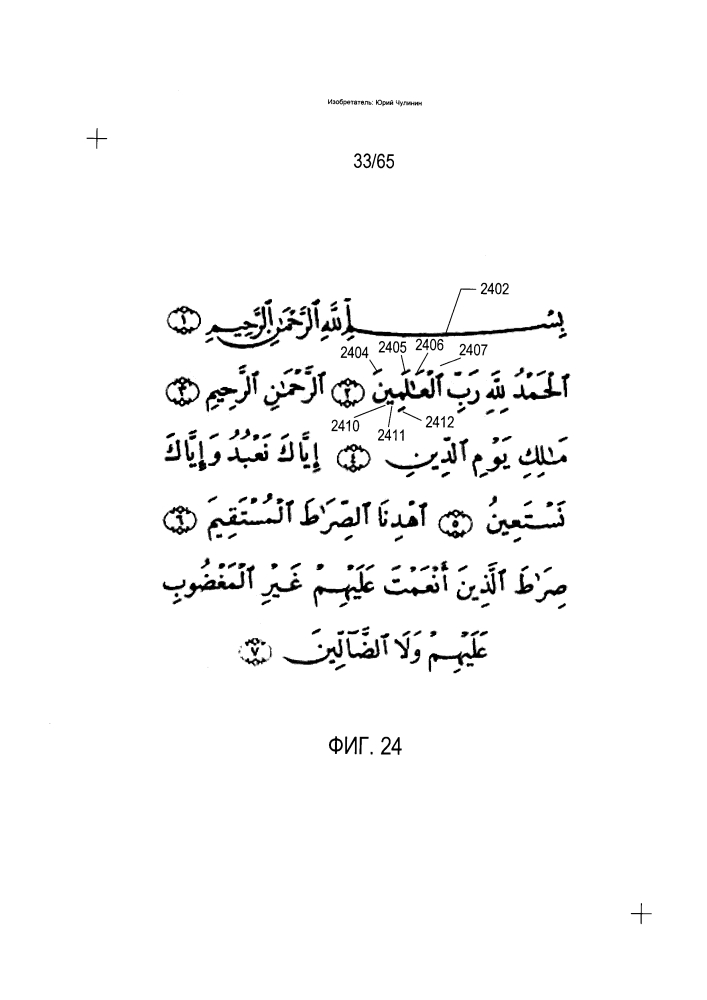 Изобретатель: Юрий Чулинин
33/65
2402
بِسْمِ ٱللَّهِ ٱلرَّحْمَٰنِ ٱلرَّحِيمِ ١
2404 2405 2406 2407
ٱلْحَمْدُ لِلَّهِ رَبِّ ٱلْعَٰلَمِينَ ٢ ٱلرَّحْمَٰنِ ٱلرَّحِيمِ ٣
2410 2411 2412
مَٰلِكِ يَوْمِ ٱلدِّينِ ٤ إِيَّاكَ نَعْبُدُ وَإِيَّاكَ
نَسْتَعِينُ ٥ ٱهْدِنَا ٱلصِّرَٰطَ ٱلْمُسْتَقِيمَ ٦
صِرَٰطَ ٱلَّذِينَ أَنْعَمْتَ عَلَيْهِمْ غَيْرِ ٱلْمَغْضُوبِ
عَلَيْهِمْ وَلَا ٱلضَّآلِّينَ ٧
ФИГ. 24